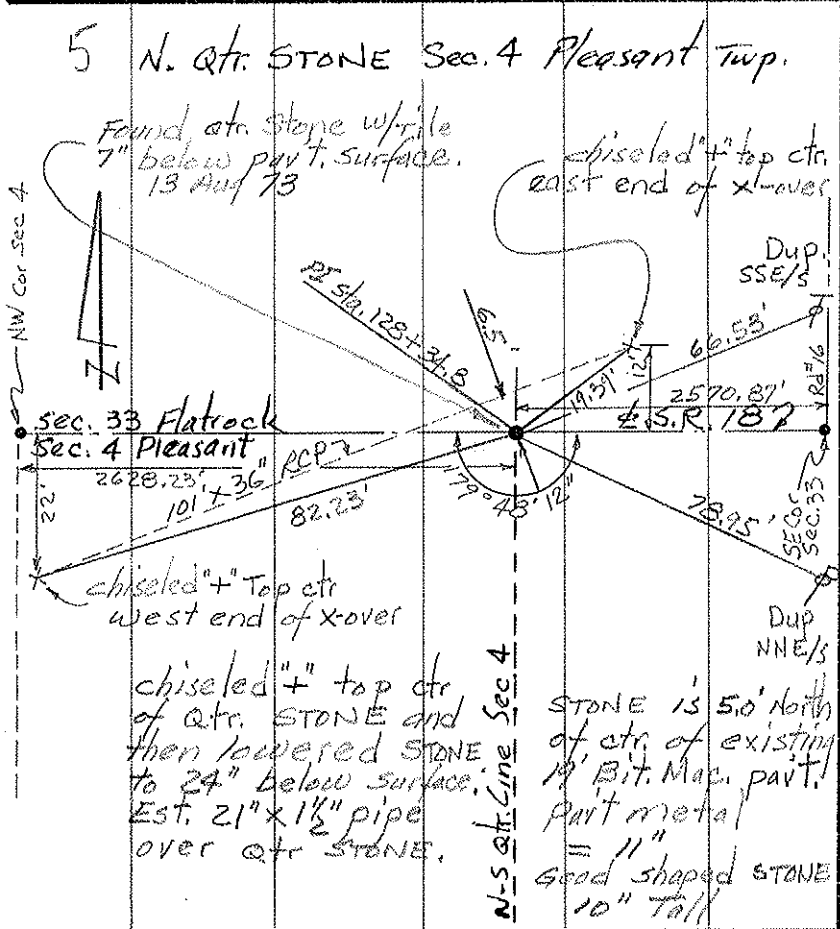 5 N. Qtr. STONE Sec. 4 Pleasant Twp.
Found qtr. Stone w/rifle
7" below pav't. surface.
13 Aug 73
chiseled "+" top ctr.
east end of x-over
NW Cor Sec 4
Z
PI Sta. 128+34.8
5.9
Dup.
SSE/s
66.53'
19.39'
12'
2570.87'
Rd #16
Sec. 33 Flatrock
Sec. 4 Pleasant
℄ S.R. 187
2628.23'
22'
101' x 36" RCP
82.23'
179° 48' 12"
78.95'
SE Cor
Sec. 33
chiseled "+" Top ctr
west end of x-over
Dup
NNE/s
chiseled "+" top ctr
of Qtr. STONE and
then lowered STONE
to 24" below surface.
Est. 21" x 1½" pipe
over Qtr STONE.
N-S Qtr. Line Sec 4
STONE is 5.0' North
of ctr. of existing
19' Bit. Mac. pav't.
Pav't metal
= 11"
Good shaped STONE
10" Tall